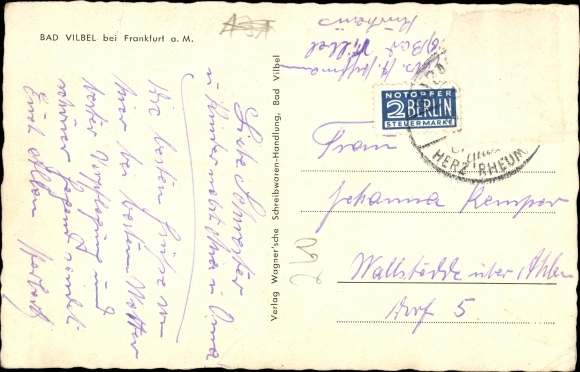 BAD VILBEL bei Frankfurt a. M.
Bad Vilbel
Kurhaus
NOTOPFER
2 BERLIN
STEUERMARKE
HERZ RHEUM
Frau
Johanna Kemper
Wallstedde über Ahlen
Dorf 5
260
Verlag Wagner'sche Schreibwaren-Handlung, Bad Vilbel
Liebe Schwester
u.
Oma
Die besten Grüße von
hier bei bestem Wetter
Verpflegung und
schöner Gegend sendet
Euch allen